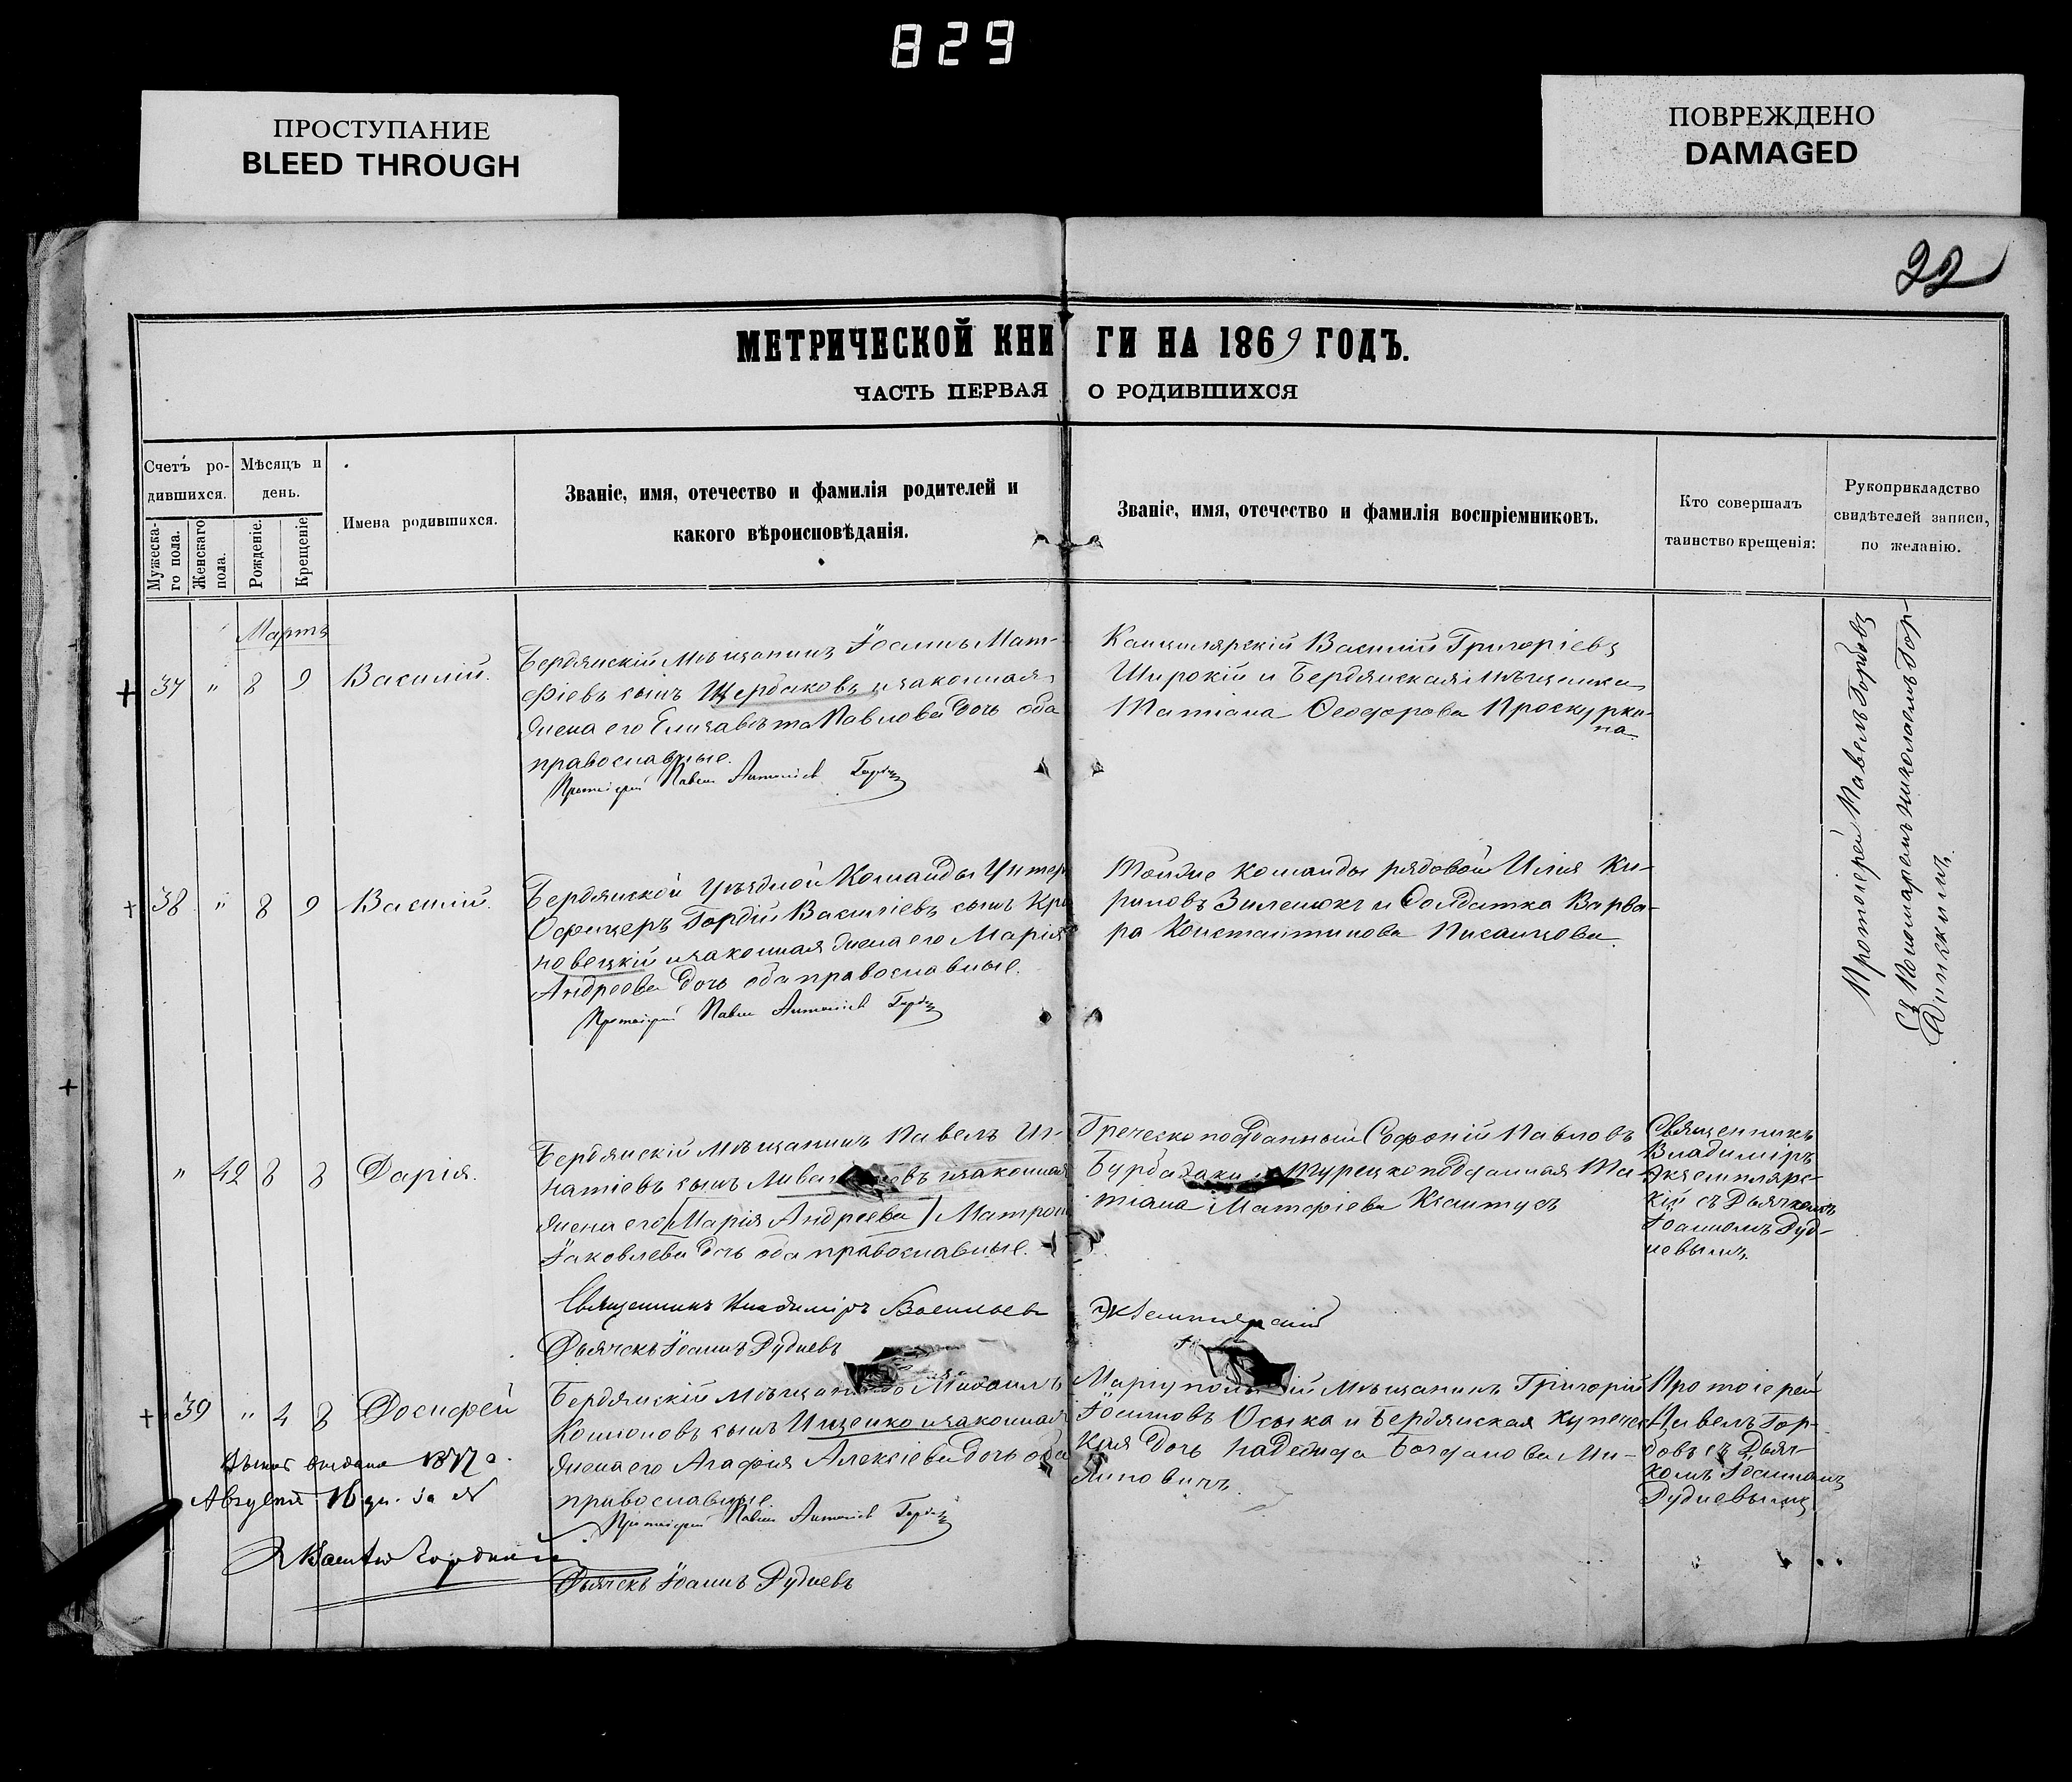 829
ПРОСТУПАНИЕ
BLEED THROUGH
ПОВРЕЖДЕНО
DAMAGED
22
МЕТРИЧЕСКОЙ КНИГИ НА 1869 ГОДЪ.
ЧАСТЬ ПЕРВАЯ О РОДИВШИХСЯ
Счетъ ро-
дившихся.
Мужеска-
го пола.
Женскаго
пола.
Мѣсяцъ и
день.
Рожденіе.
Крещеніе
Имена родившихся.
Званіе, имя, отечество и фамилія родителей и
какого вѣроисповѣданія.
Званіе, имя, отечество и фамилія воспріемниковъ.
Кто совершалъ
таинство крещенія:
Рукоприкладство
свидѣтелей записи,
по желанію.
Мартъ
37 " 8 9 Василій.
Бердянскій Мѣщанинъ Іоаннъ Мат-
фіевъ сынъ Щербаковъ и законная
жена его Елисавѣта Павлова дочь оба
православные.
Протоіерей Павелъ Антоніев Гербовъ
Канцелярскій Василій Григоріевъ
Широкій и Бердянская Мѣщанка
Татіана Ѳеодорова Проскурки-
на
Протоіерей Павелъ Гербовъ
Съ Пономаремъ Николаемъ
38 " 8 9 Василій.
Бердянской Уѣздной Команды Унтер
Офицеръ Гордій Васильевъ сынъ Кра
новецкій и законная жена его Марія
Андреева дочь оба православные.
Протоіерей Павелъ Антоніев Гербовъ
Тойже Команды рядовой Илія Ки-
риловъ Зиленюкъ и Солдатка Варва-
ра Константинова Писанцова.
" 42 8 8 Дарія.
Бердянскій Мѣщанинъ Павелъ Иг-
натіевъ сынъ и законная
жена его [Марія Андреева] Матрона
Іаковлева дочь оба православные.
Священникъ Владиміръ Васильевъ Экземплярскій
Дьячекъ Іоаннъ Рудневъ
Греческо подданный Софоній Павловъ
и Турецко подданная Та-
тіана Матфіева
Священникъ
Владиміръ
Экземплярс-
кій съ Дьячкомъ
Іоанномъ Руд-
невымъ.
39 " 4 8 Досифей
Бердянскій Мѣщанинъ Михаилъ
Кононовъ сынъ Ищенко и законная
жена его Агафія Алексіева дочь оба
православные.
Протоіерей Павелъ Антоніев Гербовъ
Дьячекъ Іоаннъ Рудневъ
Маріупольскій Мѣщанинъ Григорій
Іосифовъ Осыка и Бердянская купечес
кая дочь Надежда Богданова Ми-
линовичъ.
Протоіерей
Павелъ Гер-
бовъ съ Дьяч-
комъ Іоанномъ
Рудневымъ
выдана 1877 г.
Августа 16 дн. за №